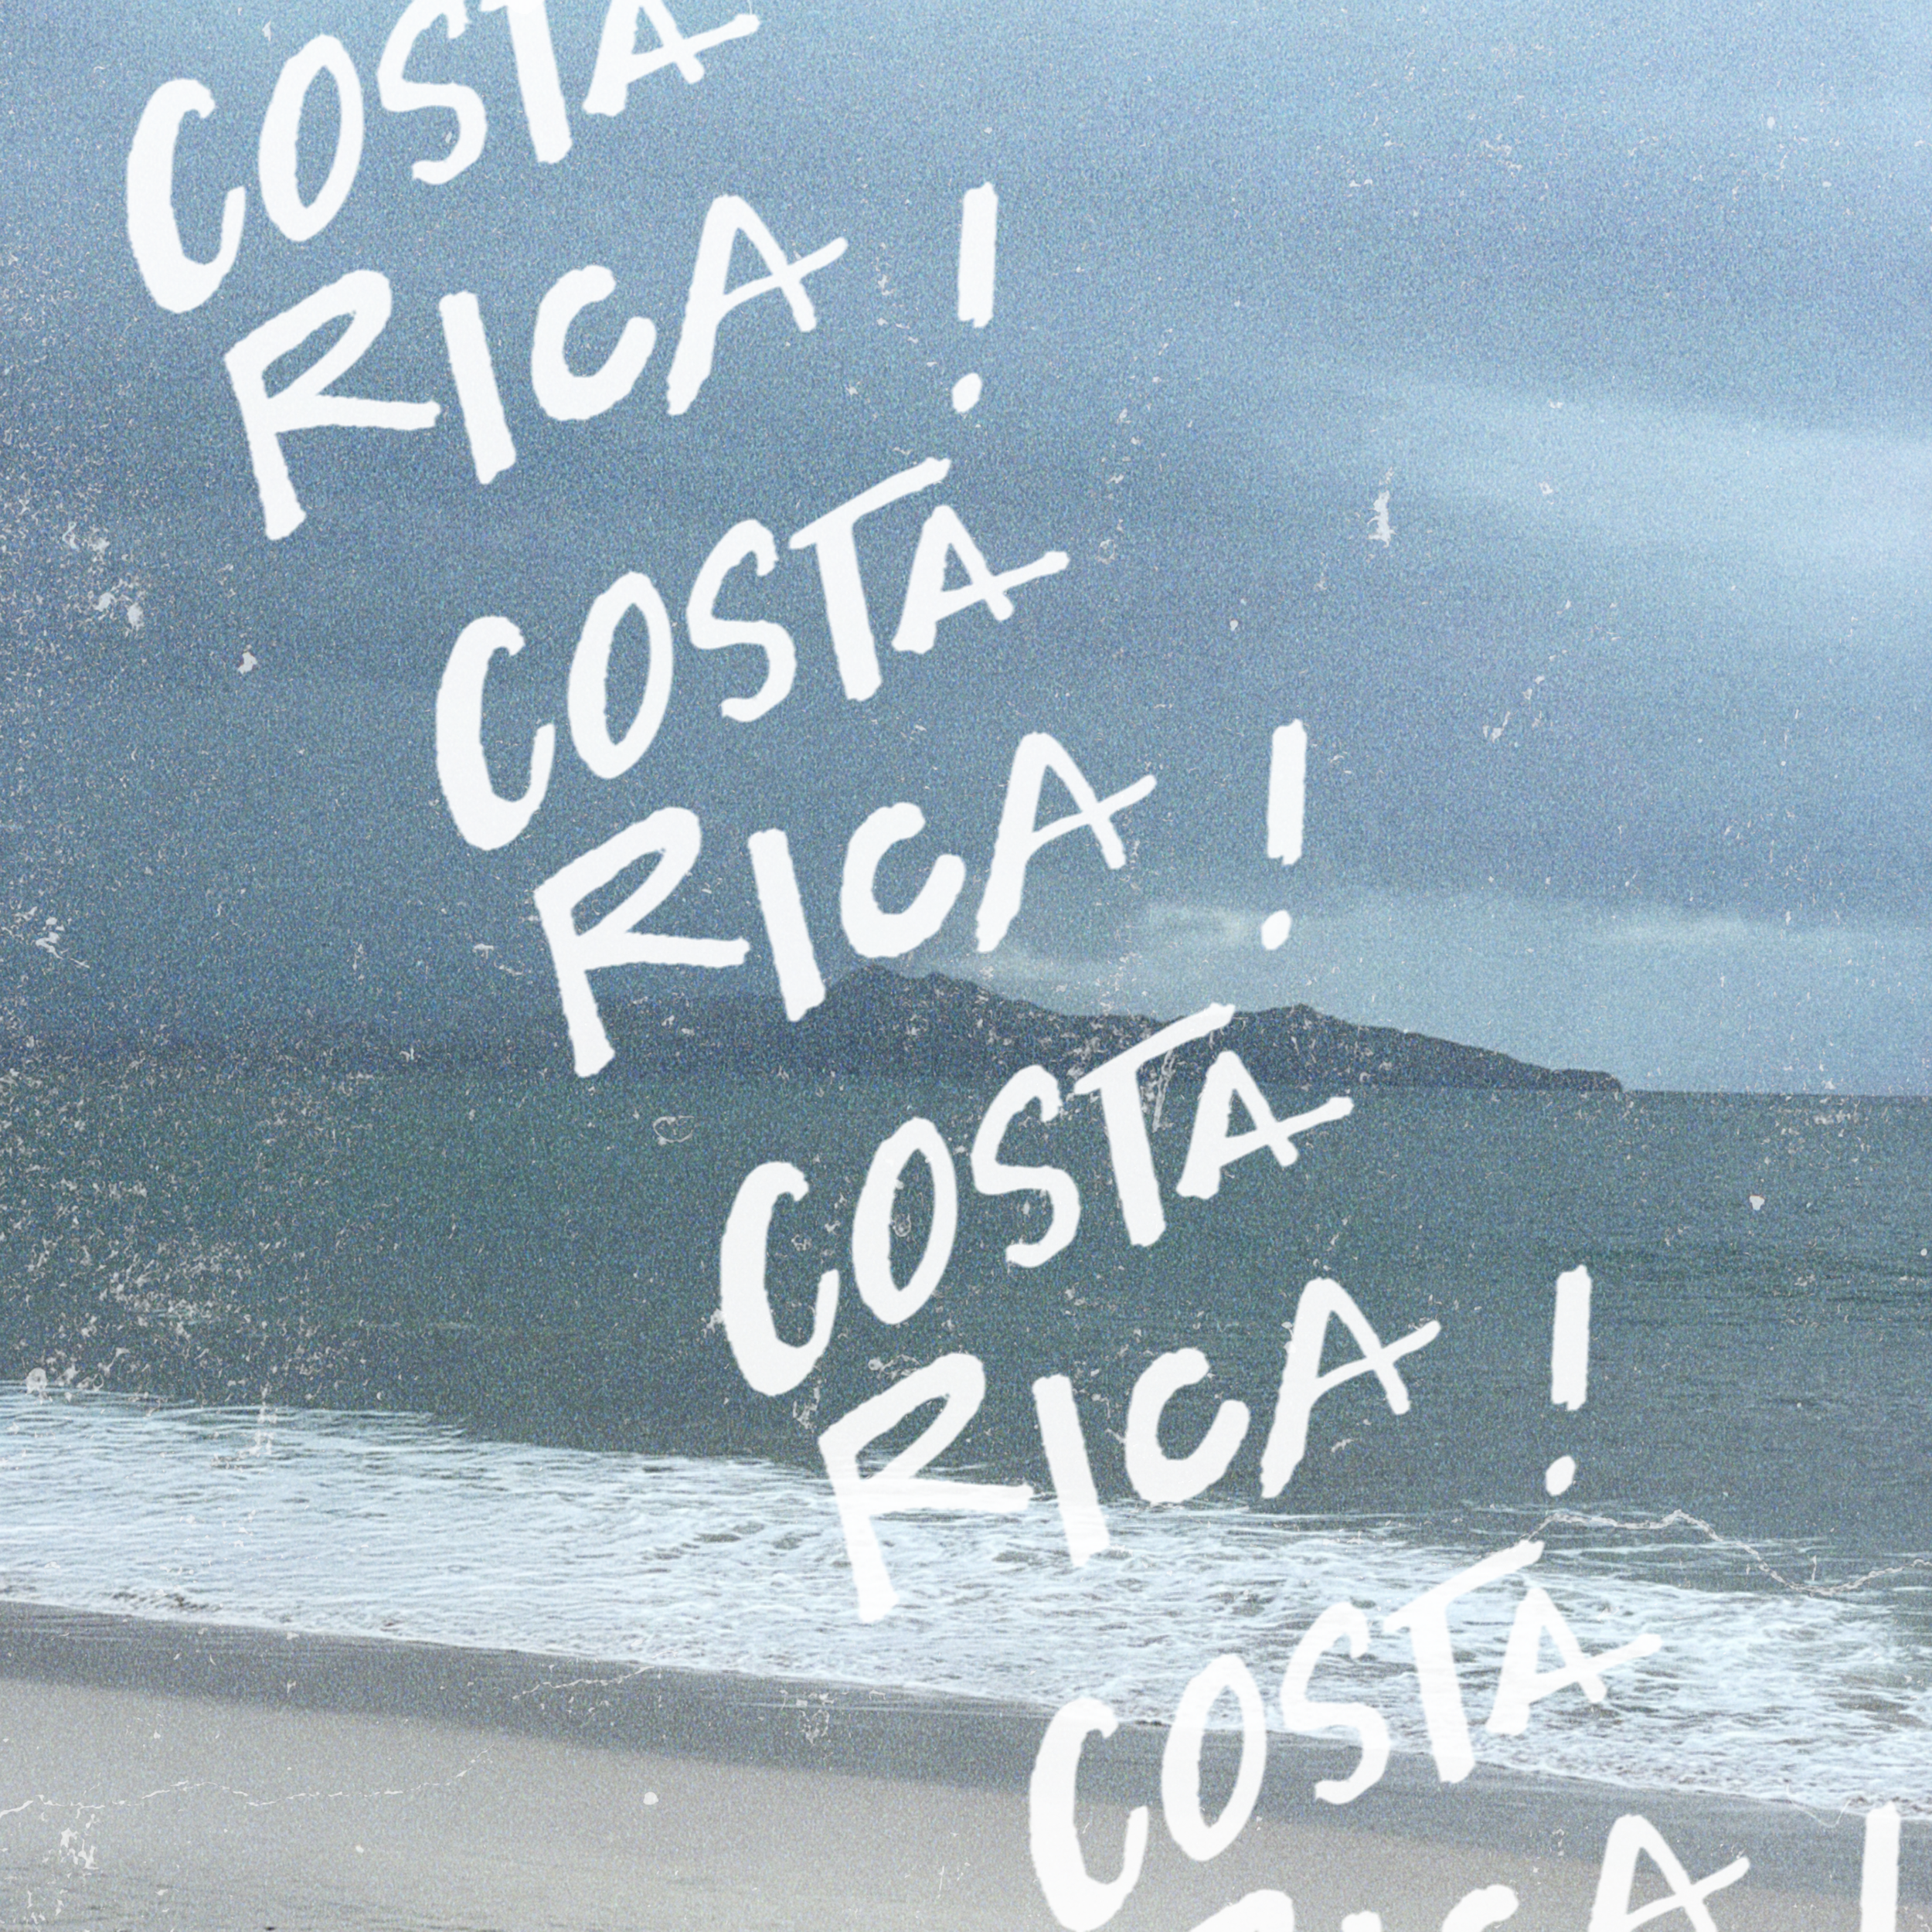 COSTA
RICA !
COSTA
RICA !
COSTA
RICA !
COSTA
RICA !